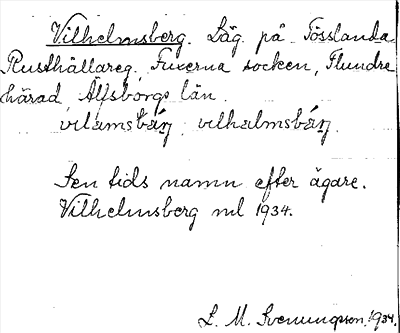 Vilhelmsberg. Läg. på Tösslanda
Rusthållareg. Fuxerna socken, Flundre
härad, Älfsborgs län.
vilamsbärj vilhalmsbärj.
Sen tids namn efter ägare.
Vilhelmsberg ml 1934.
L. M. Svenungsson. 1934.